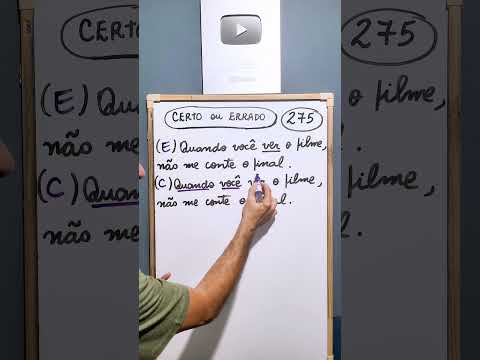 CERTO OU ERRADO 275
(E) Quando você ver o filme,
não me conte o final.
(C) Quando você o filme,
não me conte o